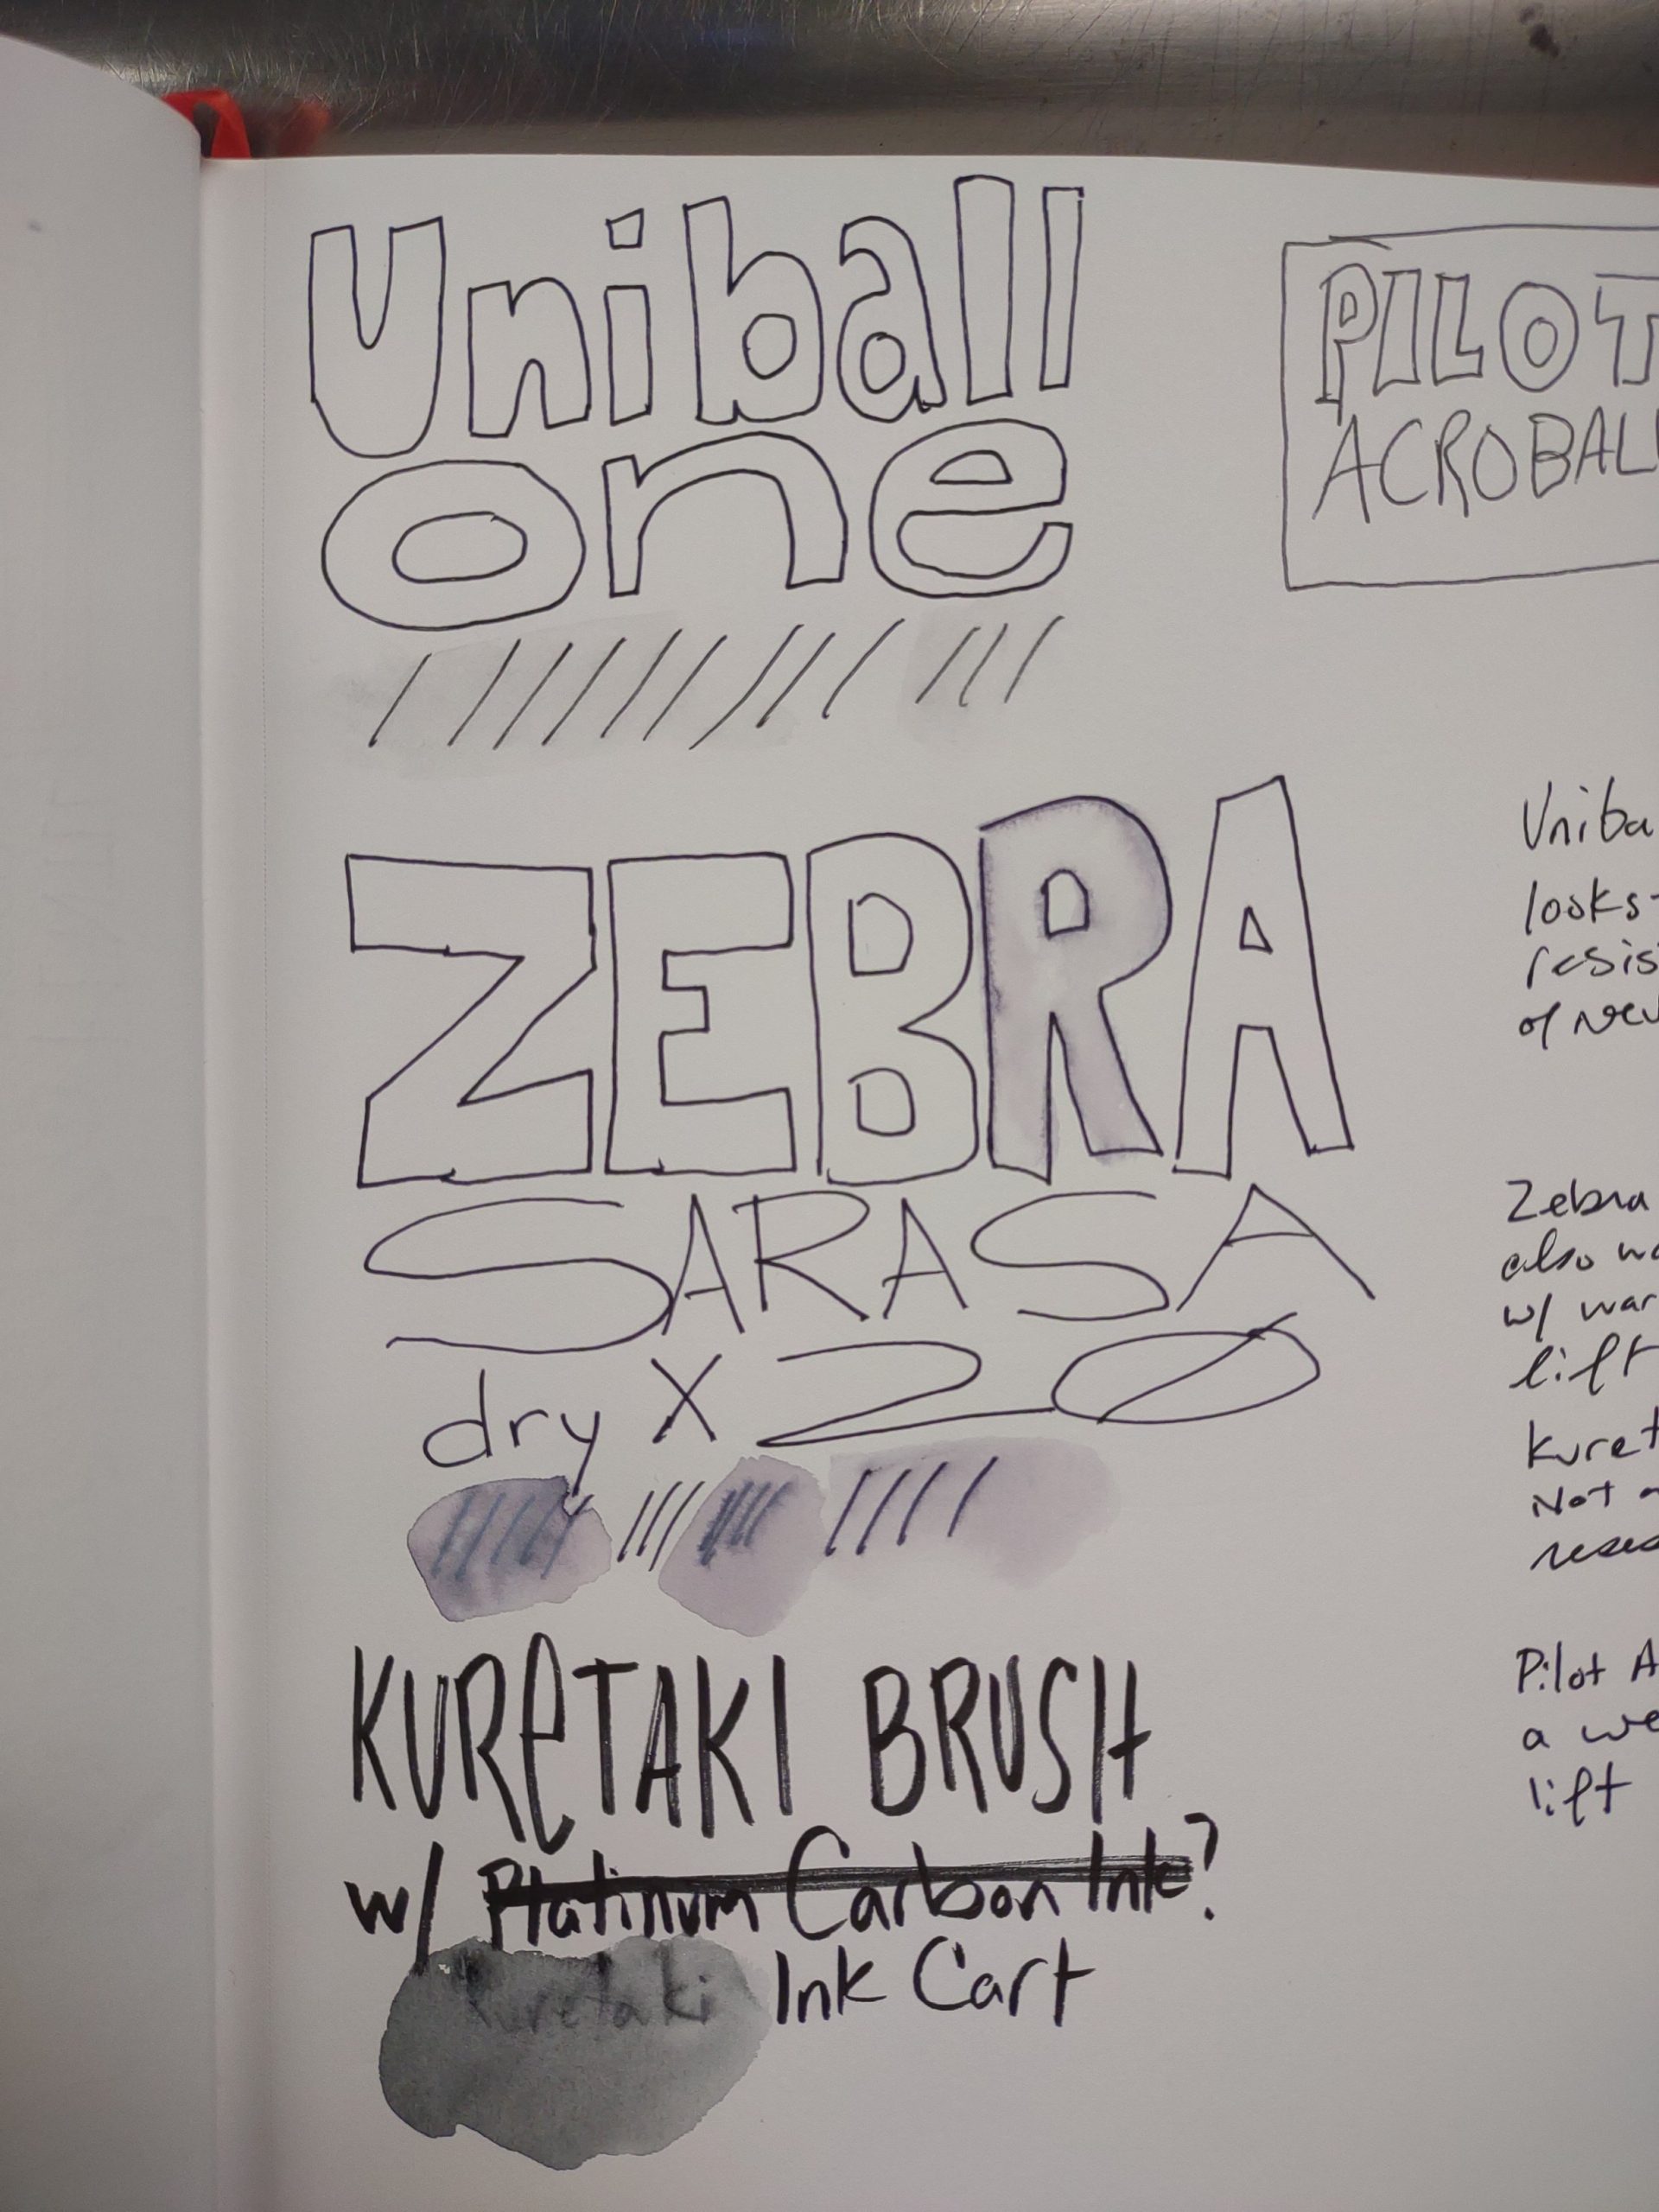 Uniball
one
PILOT
ACROBALL
ZEBRA
SARASA
dry X 20
KUReTAKI BRUSH
w/ Platinum Carbon Ink?
Kuretaki Ink Cart
Uniba
looks
resis
of
Zebra
also
w/ war
lift
Kuret
Not
Pilot A
a we
lift